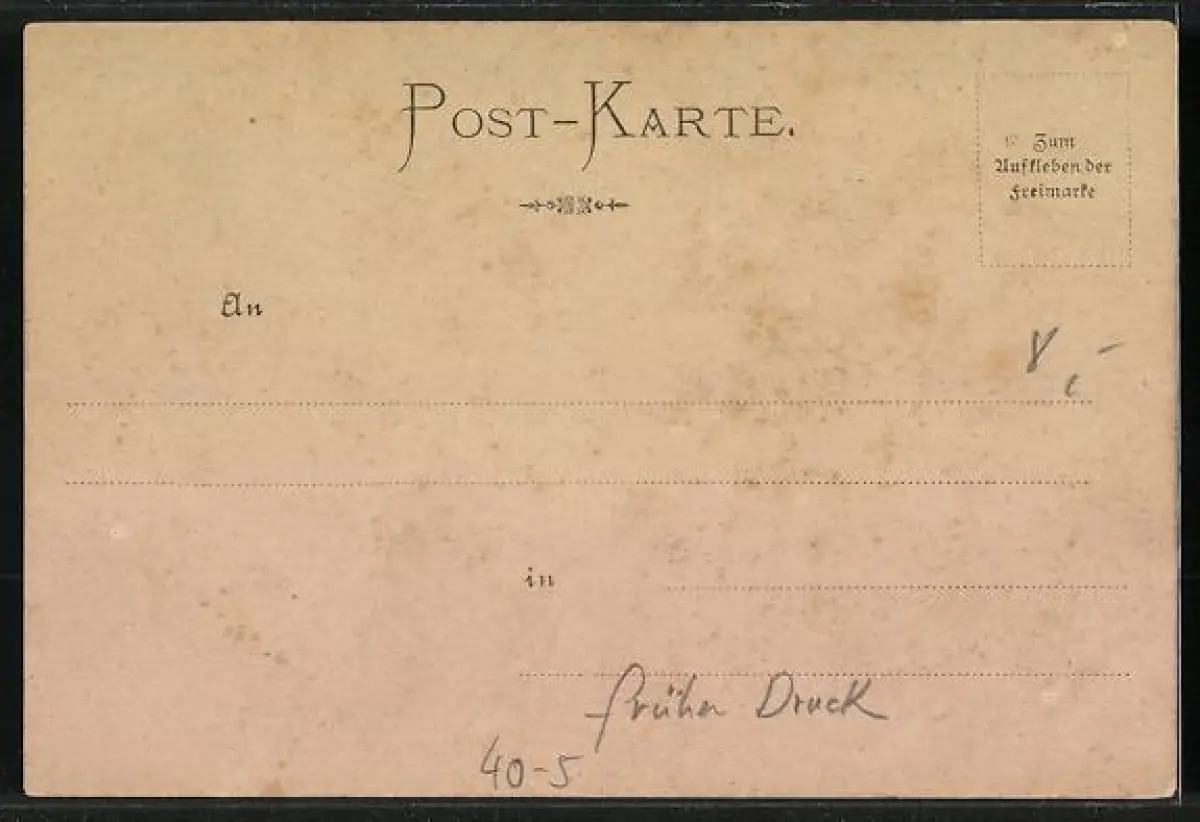 POST-KARTE.
Zum
Aufkleben der
Freimarke
An
8,-
in
früher Druck
40-5